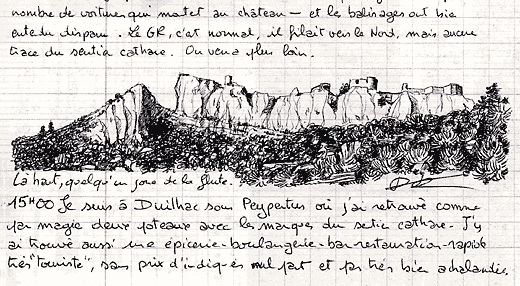 nombre de voitures qui montent au château – et les balisages ont bien
entendu disparu. Le GR, c'est normal, il filait vers le Nord, mais aucune
trace du sentier cathare. On verra plus loin.
Là haut, quelqu'un joue de la flute.
15H00 Je suis à Duilhac sous Peypertus où j'ai retrouvé comme
par magie deux poteaux avec les marques du sentier cathare. J'y
ai trouvé aussi une épicerie-boulangerie-bar-restauration-rapide
très "touriste", sans prix d'indiqués nul part et pas très bien achalandée.